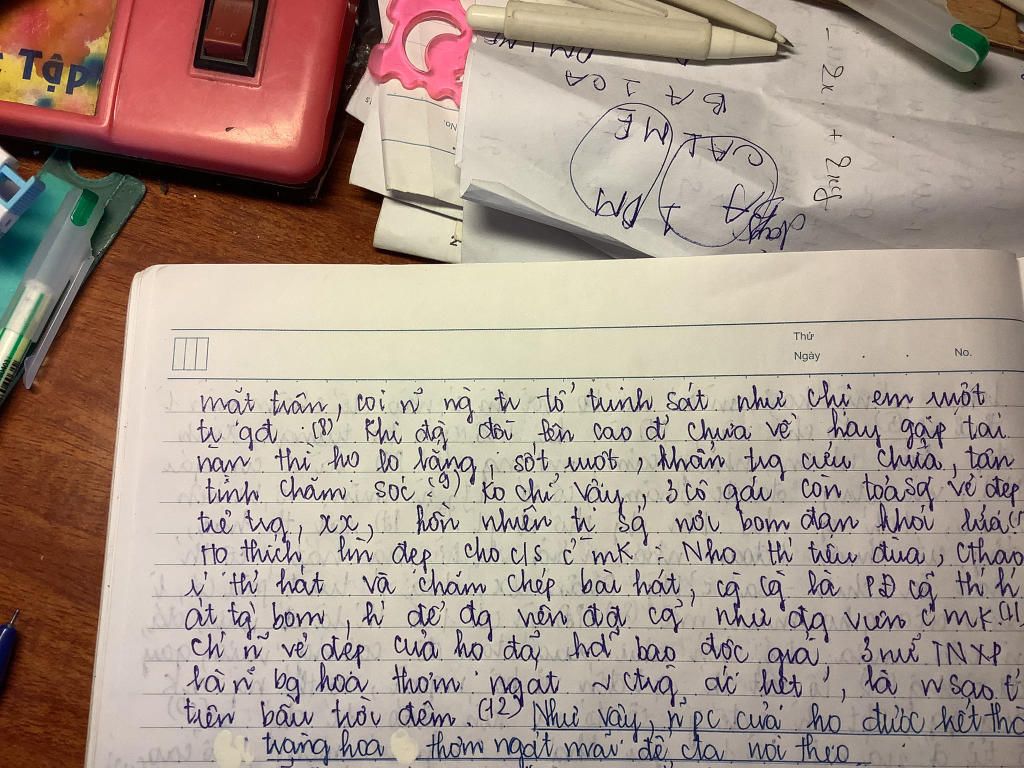 Tập
BA 1 CA
ME
CAL
1 PM
- 2x + 2xy
No.
Thứ
Ngày . . No.
mặt trận, coi n̉ ng tr tổ trinh sát như chị em ruột
tr gđ (8) Khi đồ đội lên cao đ' chưa về hay gặp tai
nạn thì họ lo lắng, sốt ruột, khẩn trg cứu chữa, tận
tình chăm sóc (9) Ko chỉ vậy, 3 cô gái còn toả sg vẻ đẹp
trẻ trg, xx, hồn nhiên tr sg nơi bom đạn khói lửa (1
Họ thích làm đẹp cho c/s c' mk : Nho thì thêu thùa, c.Thao
thì hát và chăm chép bài hát, là PĐ thì h
át bom, như đg viên c' mk (11
chí n̉ vẻ đẹp của họ đã bao độc giả 3 nữ TNXP
là n̉ bg hoa thơm ngát ác liệt, là n̉ sao t'
trên bầu trời đêm. (12) Như vậy, n̉ pc của họ được kết thà
tràng hoa thơm ngát mãi để cta noi theo